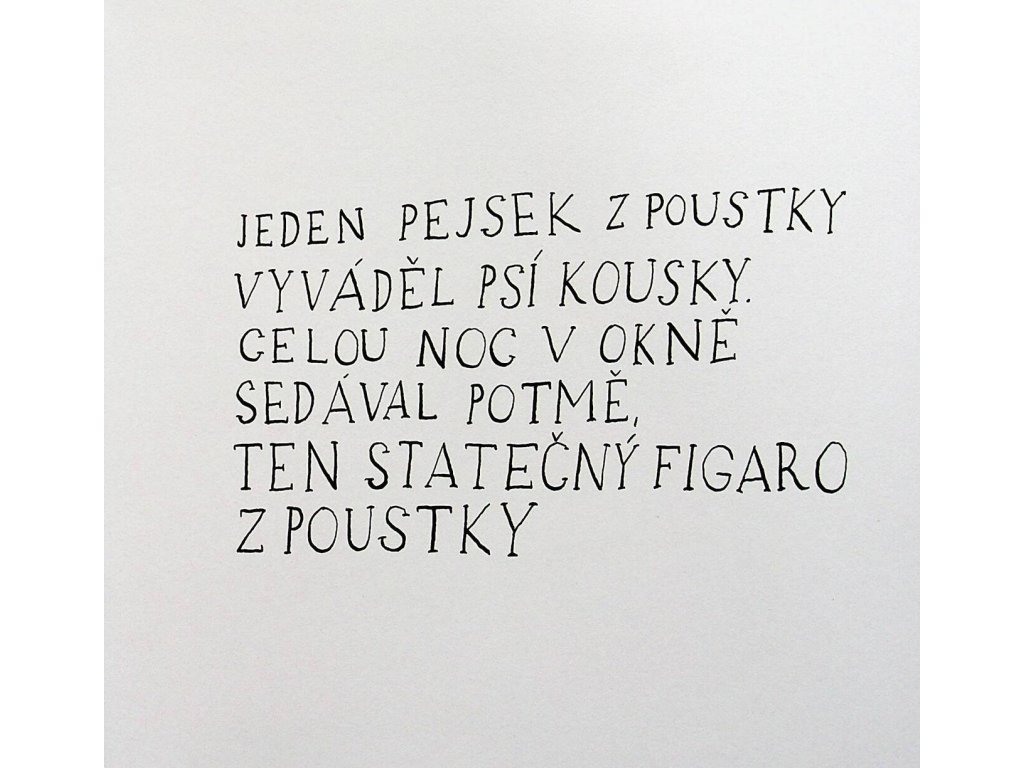 JEDEN PEJSEK Z POUSTKY
VYVÁDĚL PSÍ KOUSKY.
CELOU NOC V OKNĚ
SEDÁVAL POTMĚ,
TEN STATEČNÝ FIGARO
Z POUSTKY